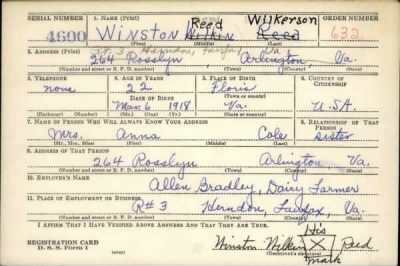 SERIAL NUMBER 1. NAME (Print) ORDER NUMBER
Reed Wilkerson
4600 WINSTON Wilkin Reed 632
(First) (Middle) (Last)
2. ADDRESS (Print) Rt. 3 Herndon, Fairfax Va
264 Rosslyn Arlington, Va.
(Number and street or R. F. D. number) (Town) (County) (State)
3. TELEPHONE 4. AGE IN YEARS 5. PLACE OF BIRTH 6. COUNTRY OF CITIZENSHIP
none 22 Floris
DATE OF BIRTH (Town or county)
Mar 6 1918 Va. U.S.A.
(Exchange) (Number) (Mo.) (Day) (Yr.) (State or country)
7. NAME OF PERSON WHO WILL ALWAYS KNOW YOUR ADDRESS 8. RELATIONSHIP OF THAT PERSON
Mrs. Anna Cole sister
(Mr., Mrs., Miss) (First) (Middle) (Last)
9. ADDRESS OF THAT PERSON
264 Rosslyn Arlington Va.
(Number and street or R. F. D. number) (Town) (County) (State)
10. EMPLOYER'S NAME
Allen Bradley, Dairy Farmer
11. PLACE OF EMPLOYMENT OR BUSINESS
R#3 Herndon, Fairfax, Va.
(Number and street or R. F. D. number) (Town) (County) (State)
I AFFIRM THAT I HAVE VERIFIED ABOVE ANSWERS AND THAT THEY ARE TRUE.
His
REGISTRATION CARD Winston Wilkin X Reed
D. S. S. Form 1 (Registrant's signature)
mark